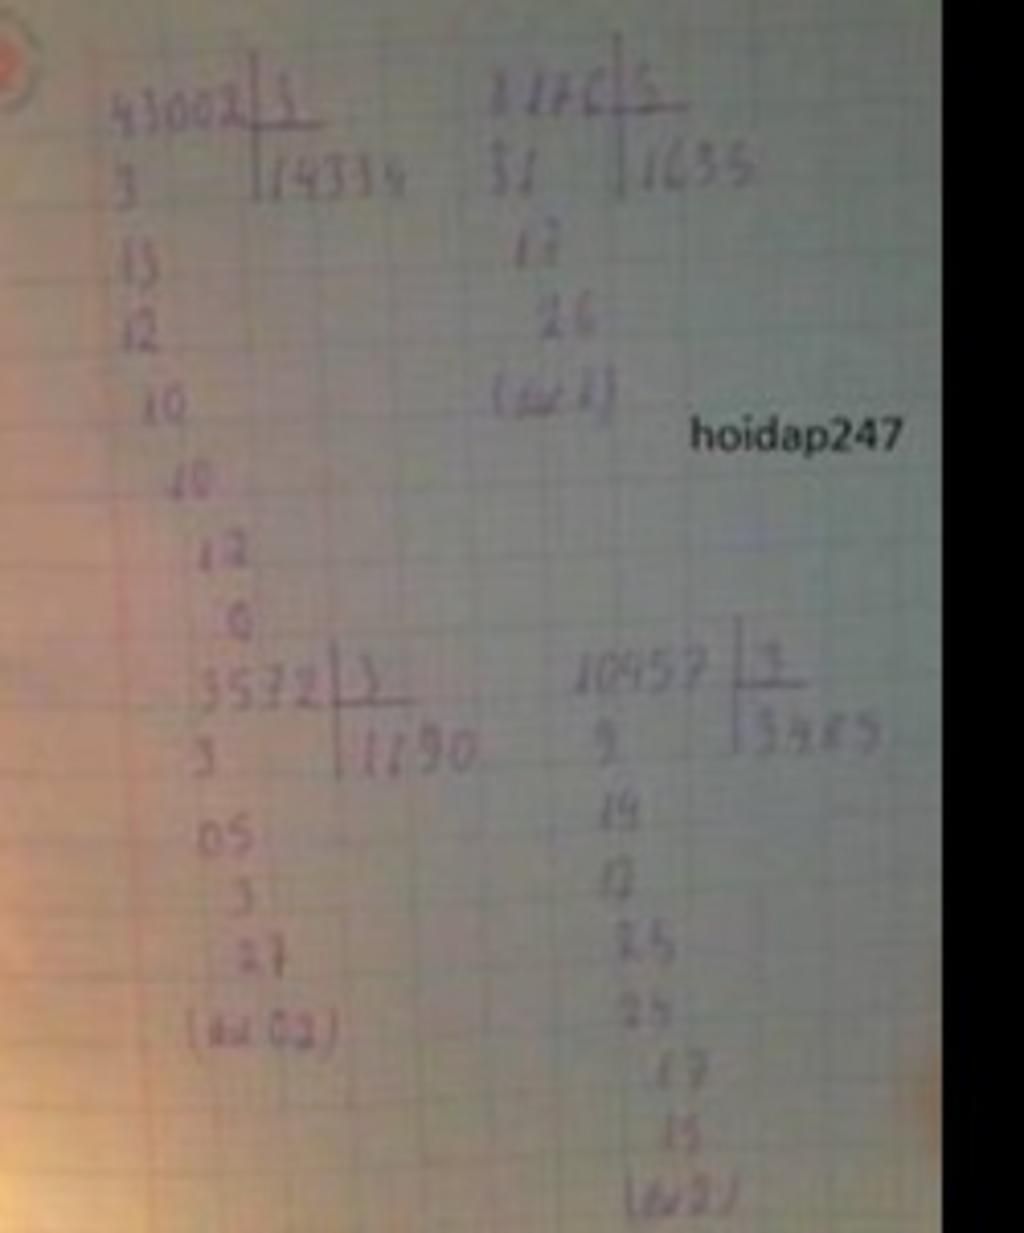 43002 3
3 14334
13
12
10
10
12
0
8176 5
31 1635
17
26
(dư 1)
hoidap247
3572 3
3 1190
05
3
27
(dư 02)
10457 3
9 3485
14
12
25
24
17
15
(dư 2)